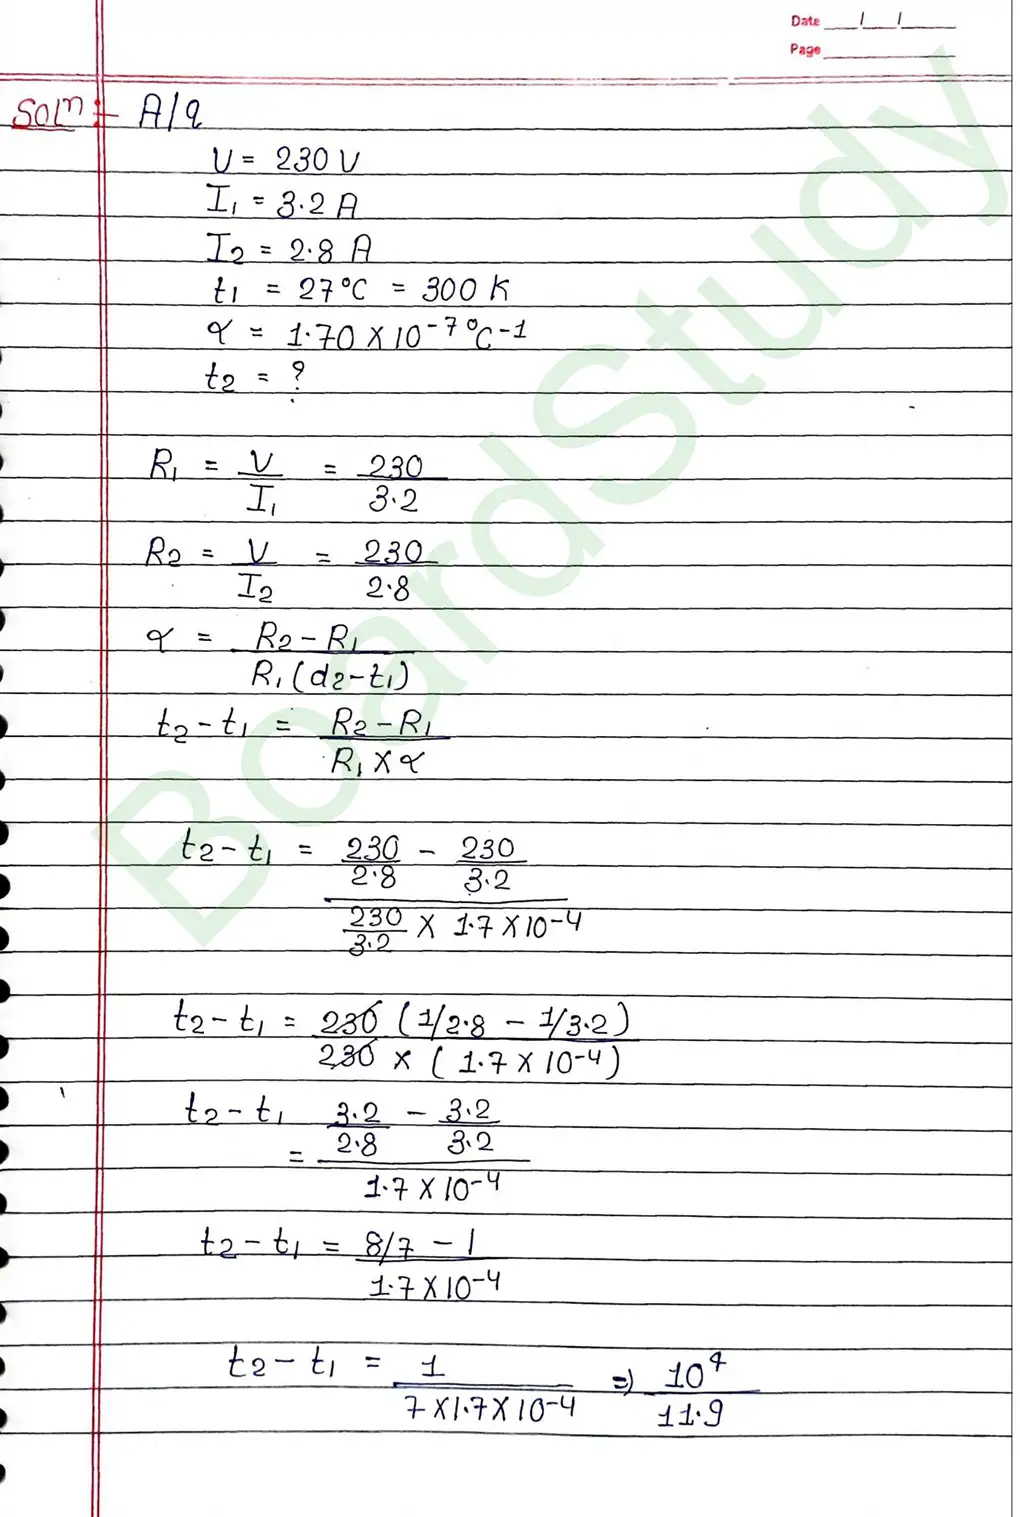 Date __/__/__
Page
Solⁿ :- A/q
V = 230 V
I₁ = 3.2 A
I₂ = 2.8 A
t₁ = 27°C = 300 K
α = 1.70 X 10⁻⁷ °C⁻¹
t₂ = ?
R₁ = V/I₁ = 230/3.2
R₂ = V/I₂ = 230/2.8
α = R₂ - R₁ / R₁ (d₂ - t₁)
t₂ - t₁ = R₂ - R₁ / R₁ X α
t₂ - t₁ = 230/2.8 - 230/3.2 / 230/3.2 X 1.7 X 10⁻⁴
t₂ - t₁ = 230 (1/2.8 - 1/3.2) / 230 x (1.7 X 10⁻⁴)
t₂ - t₁ = 3.2/2.8 - 3.2/3.2 / 1.7 X 10⁻⁴
t₂ - t₁ = 8/7 - 1 / 1.7 X 10⁻⁴
t₂ - t₁ = 1 / 7 X 1.7 X 10⁻⁴ => 10⁴ / 11.9
BoardStudy